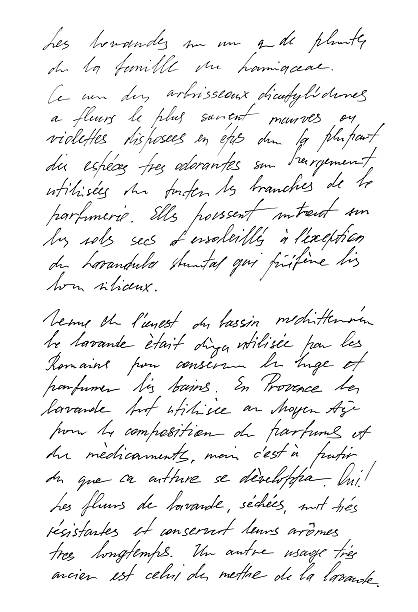 Les lavandes un g de plantes
de la famille du Lamiaceae.
Ce arbrisseaux dicotylédones
a fleurs le plus souvent mauves ou
violettes disposées en épis la plupart
des espèces très odorantes sont largement
utilisées les branches de la
parfumerie. Elles poussent surtout sur
les sols secs et ensoleillés à l'exception
du Lavandula qui préfère les
siliceux.
de l'ouest du bassin
la lavande était déja utilisée par les
Romains pour conserver le linge et
parfumer les bains. En Provence la
lavande fut utilisée au Moyen
pour la composition de parfums et
du médicaments, mais c'est à
du que sa culture se développa.
Les fleurs de lavande, séchées, sont très
résistantes et conservent leurs arômes
tres longtemps. Un autre usage très
ancien est celui de mettre de la lavande.